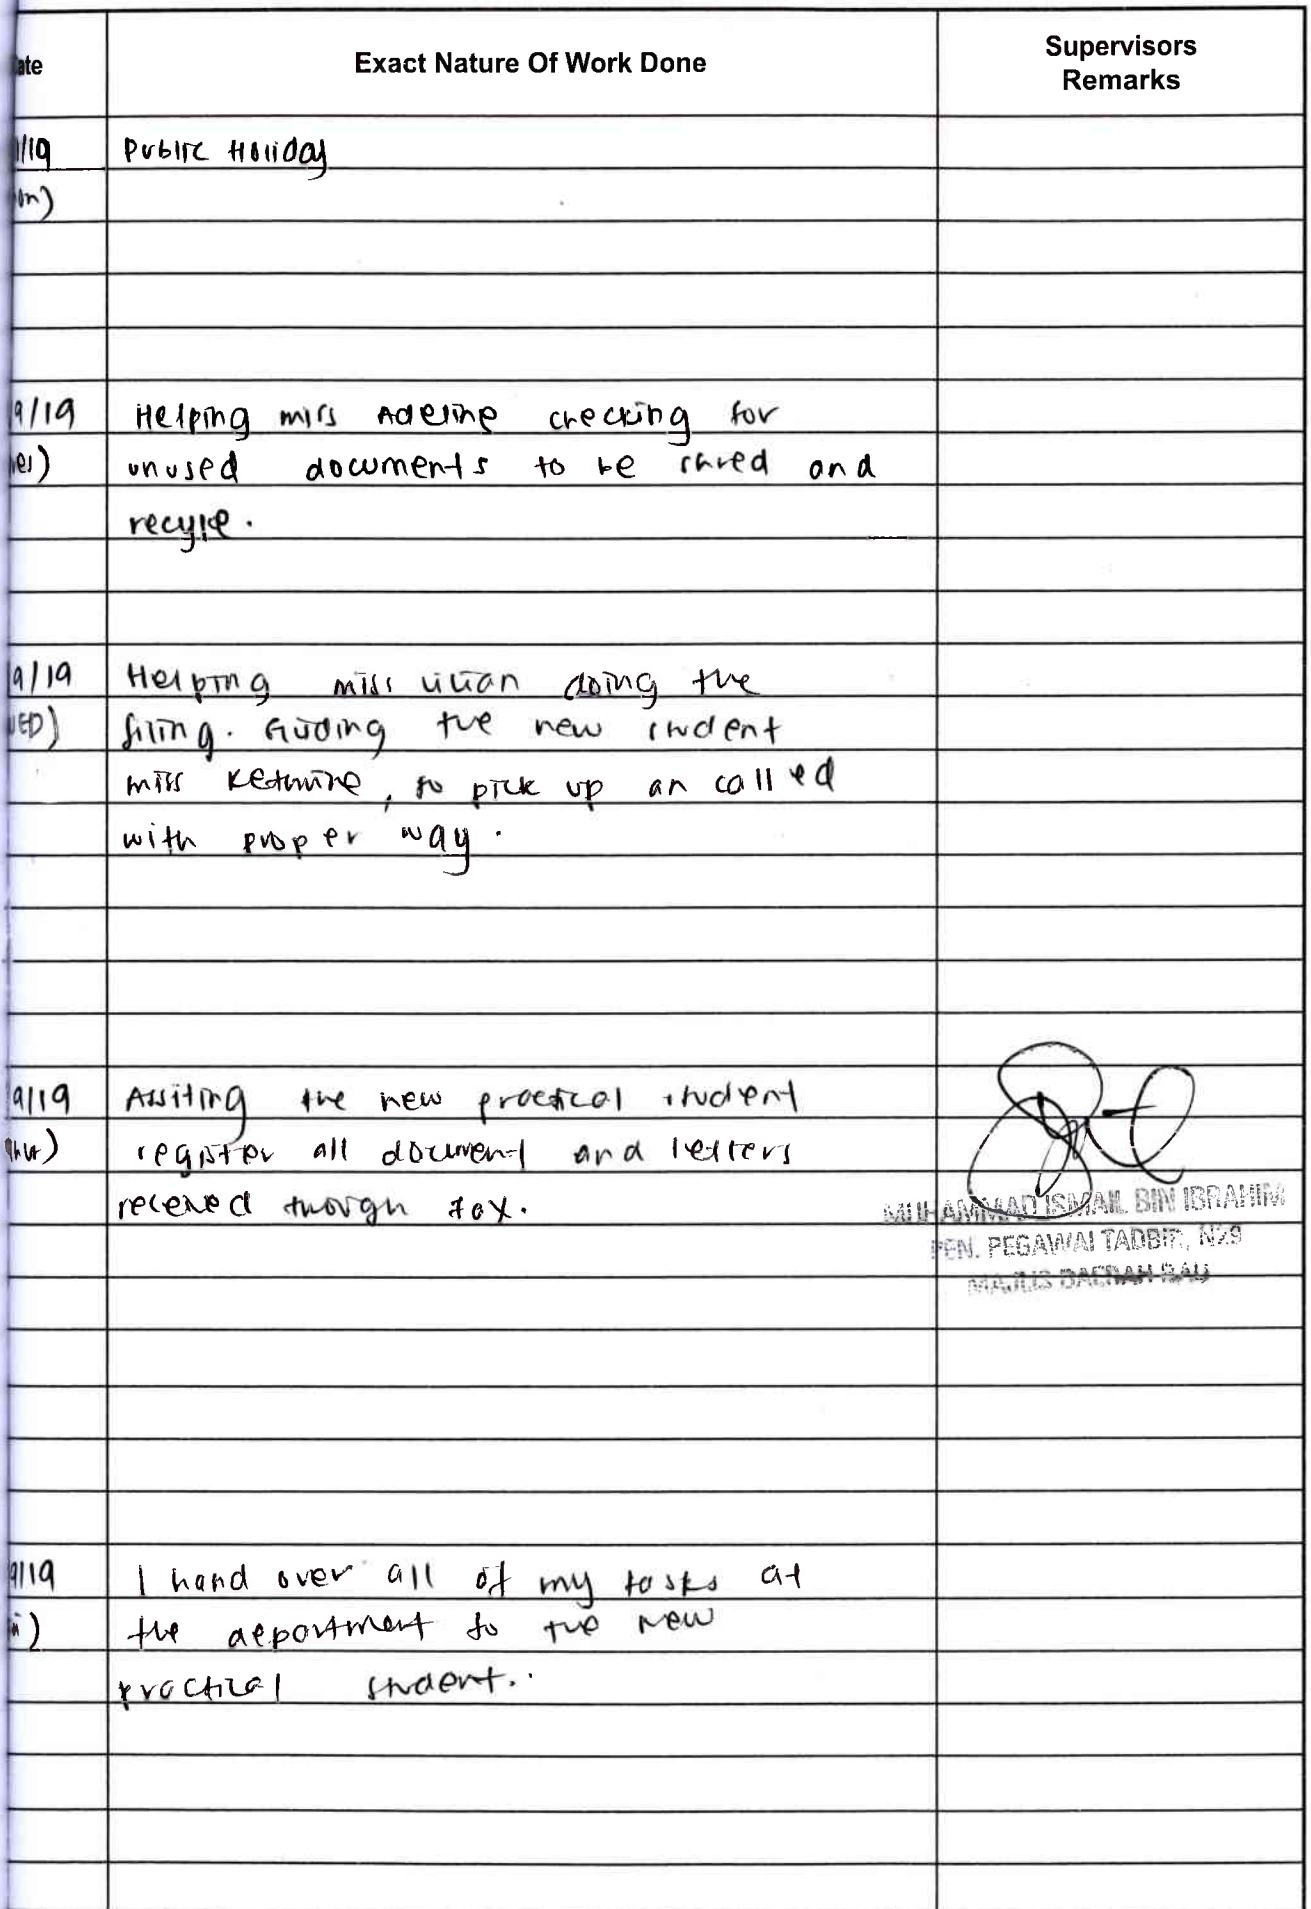 ate Exact Nature Of Work Done Supervisors
Remarks
/19 Public Holiday
on)
9/19 Helping miss Adeline checking for
es) unused documents to be shred and
recycle.
9/19 Helping miss Lilian doing the
WED) filing. Guiding the new student
miss , to pick up an called
with proper way.
9/19 Assiting the new practical student
register all document and letters
received though fax.
MUHAMMAD ISMAIL BIN IBRAHIM
PEN. PEGAWAI TADBIR, N29
MAJLIS DAERAH BAU
9/19 I hand over all of my tasks at
the department to the new
practical student.